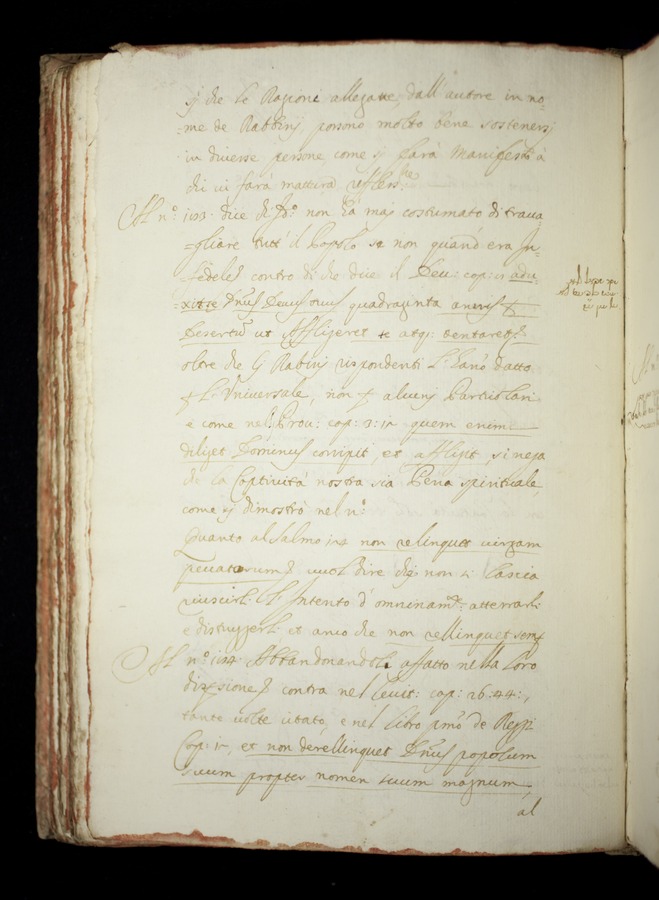 che le Ragioni allegate, dall'autore in no-
-me de Rabbini, possono molto bene sostenersi
in diverse persone, come si farà manifesto à
chi vi farà mattura refless.ne
Al n.º 1123. dice Id.º non hà mai costumato di trava
=gliare tutt'il Popolo se non quand'era In-
fedele contro di che dice il Deu: cap: adu-
xitte D'nus Deus tuus quadraginta annis p
Desertũ ut Affligeret te atq: tentaret p.
oltre che Rabini rispondenti L' dano datto
p L'Universale, non p alcuni Particolari
e come nel Prou: cap: 3: quem enim
diliget Dominus corripit, et affligit, si nega
che la Captività nostra sia Pena spirituale,
come si dimostrò nel n.º
Quanto al Salmo 124 non relinquet virgam
peccatorum vuol dire che non li lascia
riuscirli l'Intento d'omninam.te atterrarli
e distruggerli et anco che non rellinquet semp
Al n.º 1124. Abbandonandoli affatto nella loro
dispersione contra nel Levit: cap: 26:44:,
tante volte citato, e nel libro pmo de Reggi
Cap: et non derellinquet D'nus populum
suum propter nomen suum magnum,
al